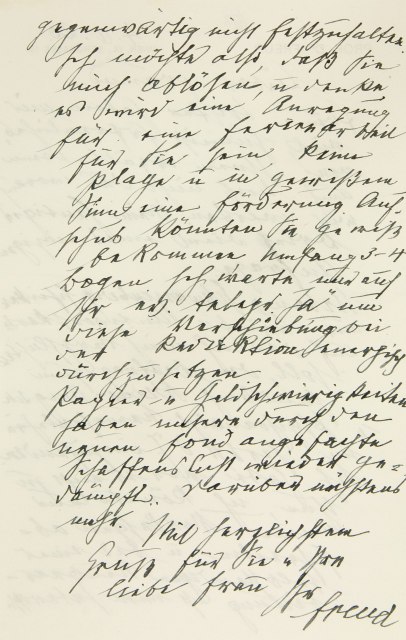 gegenwärtig nicht festzuhalten.
Ich möchte also, daß Sie
mich ablösen, u denke
es wird eine Anregung
für eine Ferienarbeit
für Sie sein, keine
Plage u in gewißem
Sinn eine Förderung Auf-
schub könnten Sie gewiß
bekommen Umfang 3-4
bogen. Ich warte nur auf
Ihr ev. telegr. Ja um
diese Verschiebung bei
der Redaktion energisch
durchzusetzen
Papier u Geldschwierigkeiten
haben unsere durch den
neuen Fond angefachte
Schaffenslust wieder ge-
dämpft. Darüber nächstens
mehr.
Mit herzlichstem
Gruß für Sie u Ihre
liebe Frau Ihr
Freud